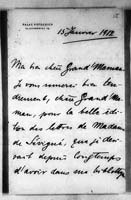 15 Janvier 1912
Ma bien chère Grand'Maman
Je vous remercie bien ten-
drement, chère Grand'Ma-
man, pour la belle édi-
tion des lettres de Madame
de Sévigné, que je dési-
rais depuis longtemps
d'avoir dans ma biblio-